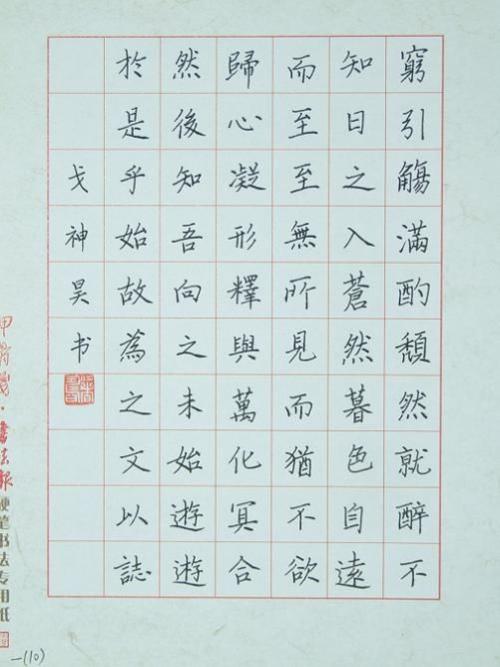 窮引觴滿酌頹然就醉不
知日之入蒼然暮色自遠
而至至無所見而猶不欲
歸心凝形釋與萬化冥合
然後知吾向之未始遊遊
於是乎始故為之文以誌
戈神昊书
書法报
硬笔书法专用纸
一(10)